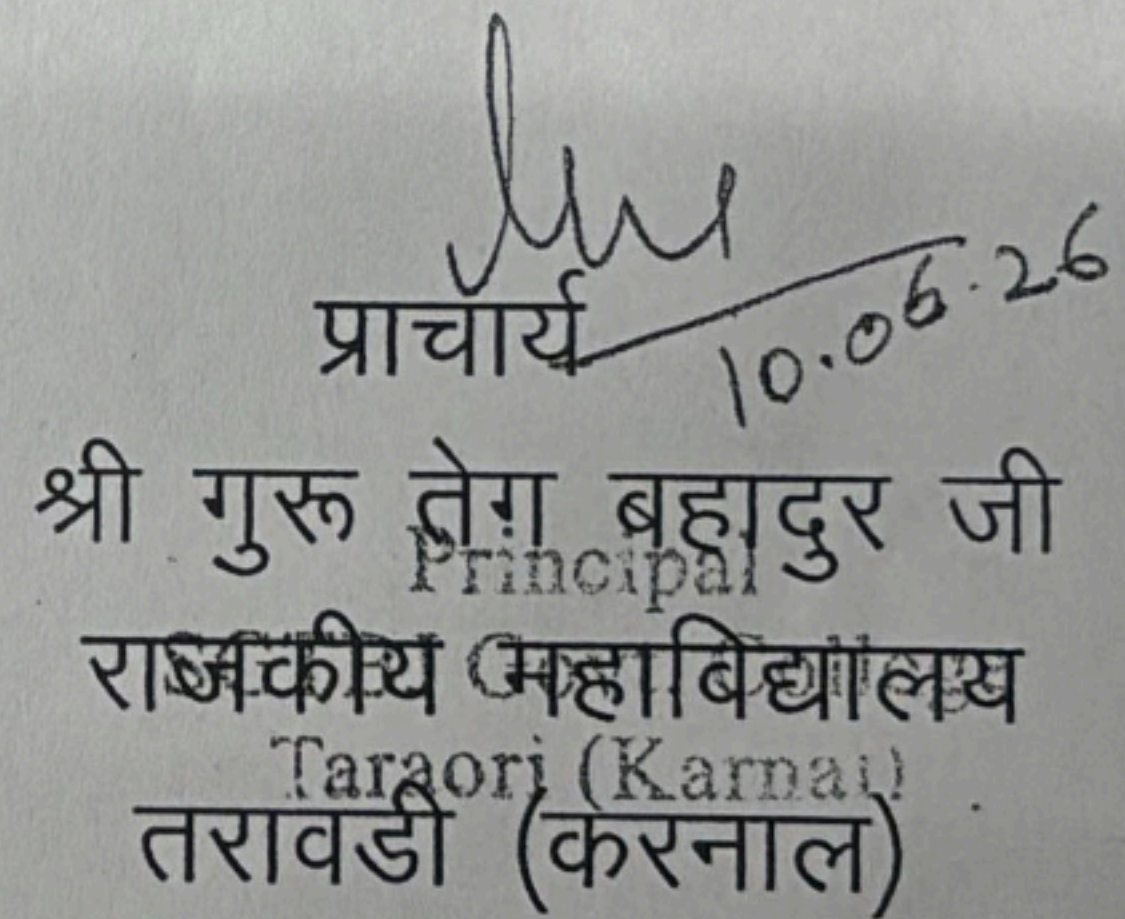 प्राचार्य
10.06.26
श्री गुरू तेग बहादुर जी
Principal
राजकीय महाबिद्यालय
Taraori (Karnal)
तरावडी (करनाल)